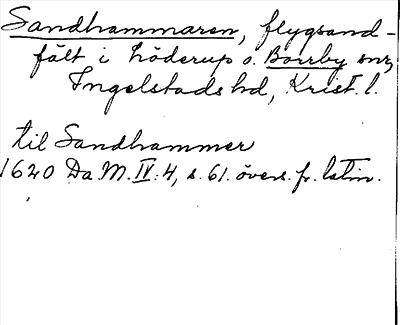 Sandhammaren, flygsand-
fält i Löderup o. Borrby snr,
Ingelstads hd, Krist. l.
til Sandhammer
1620 Da.M. IV:4, s. 61. övers. fr. latin.